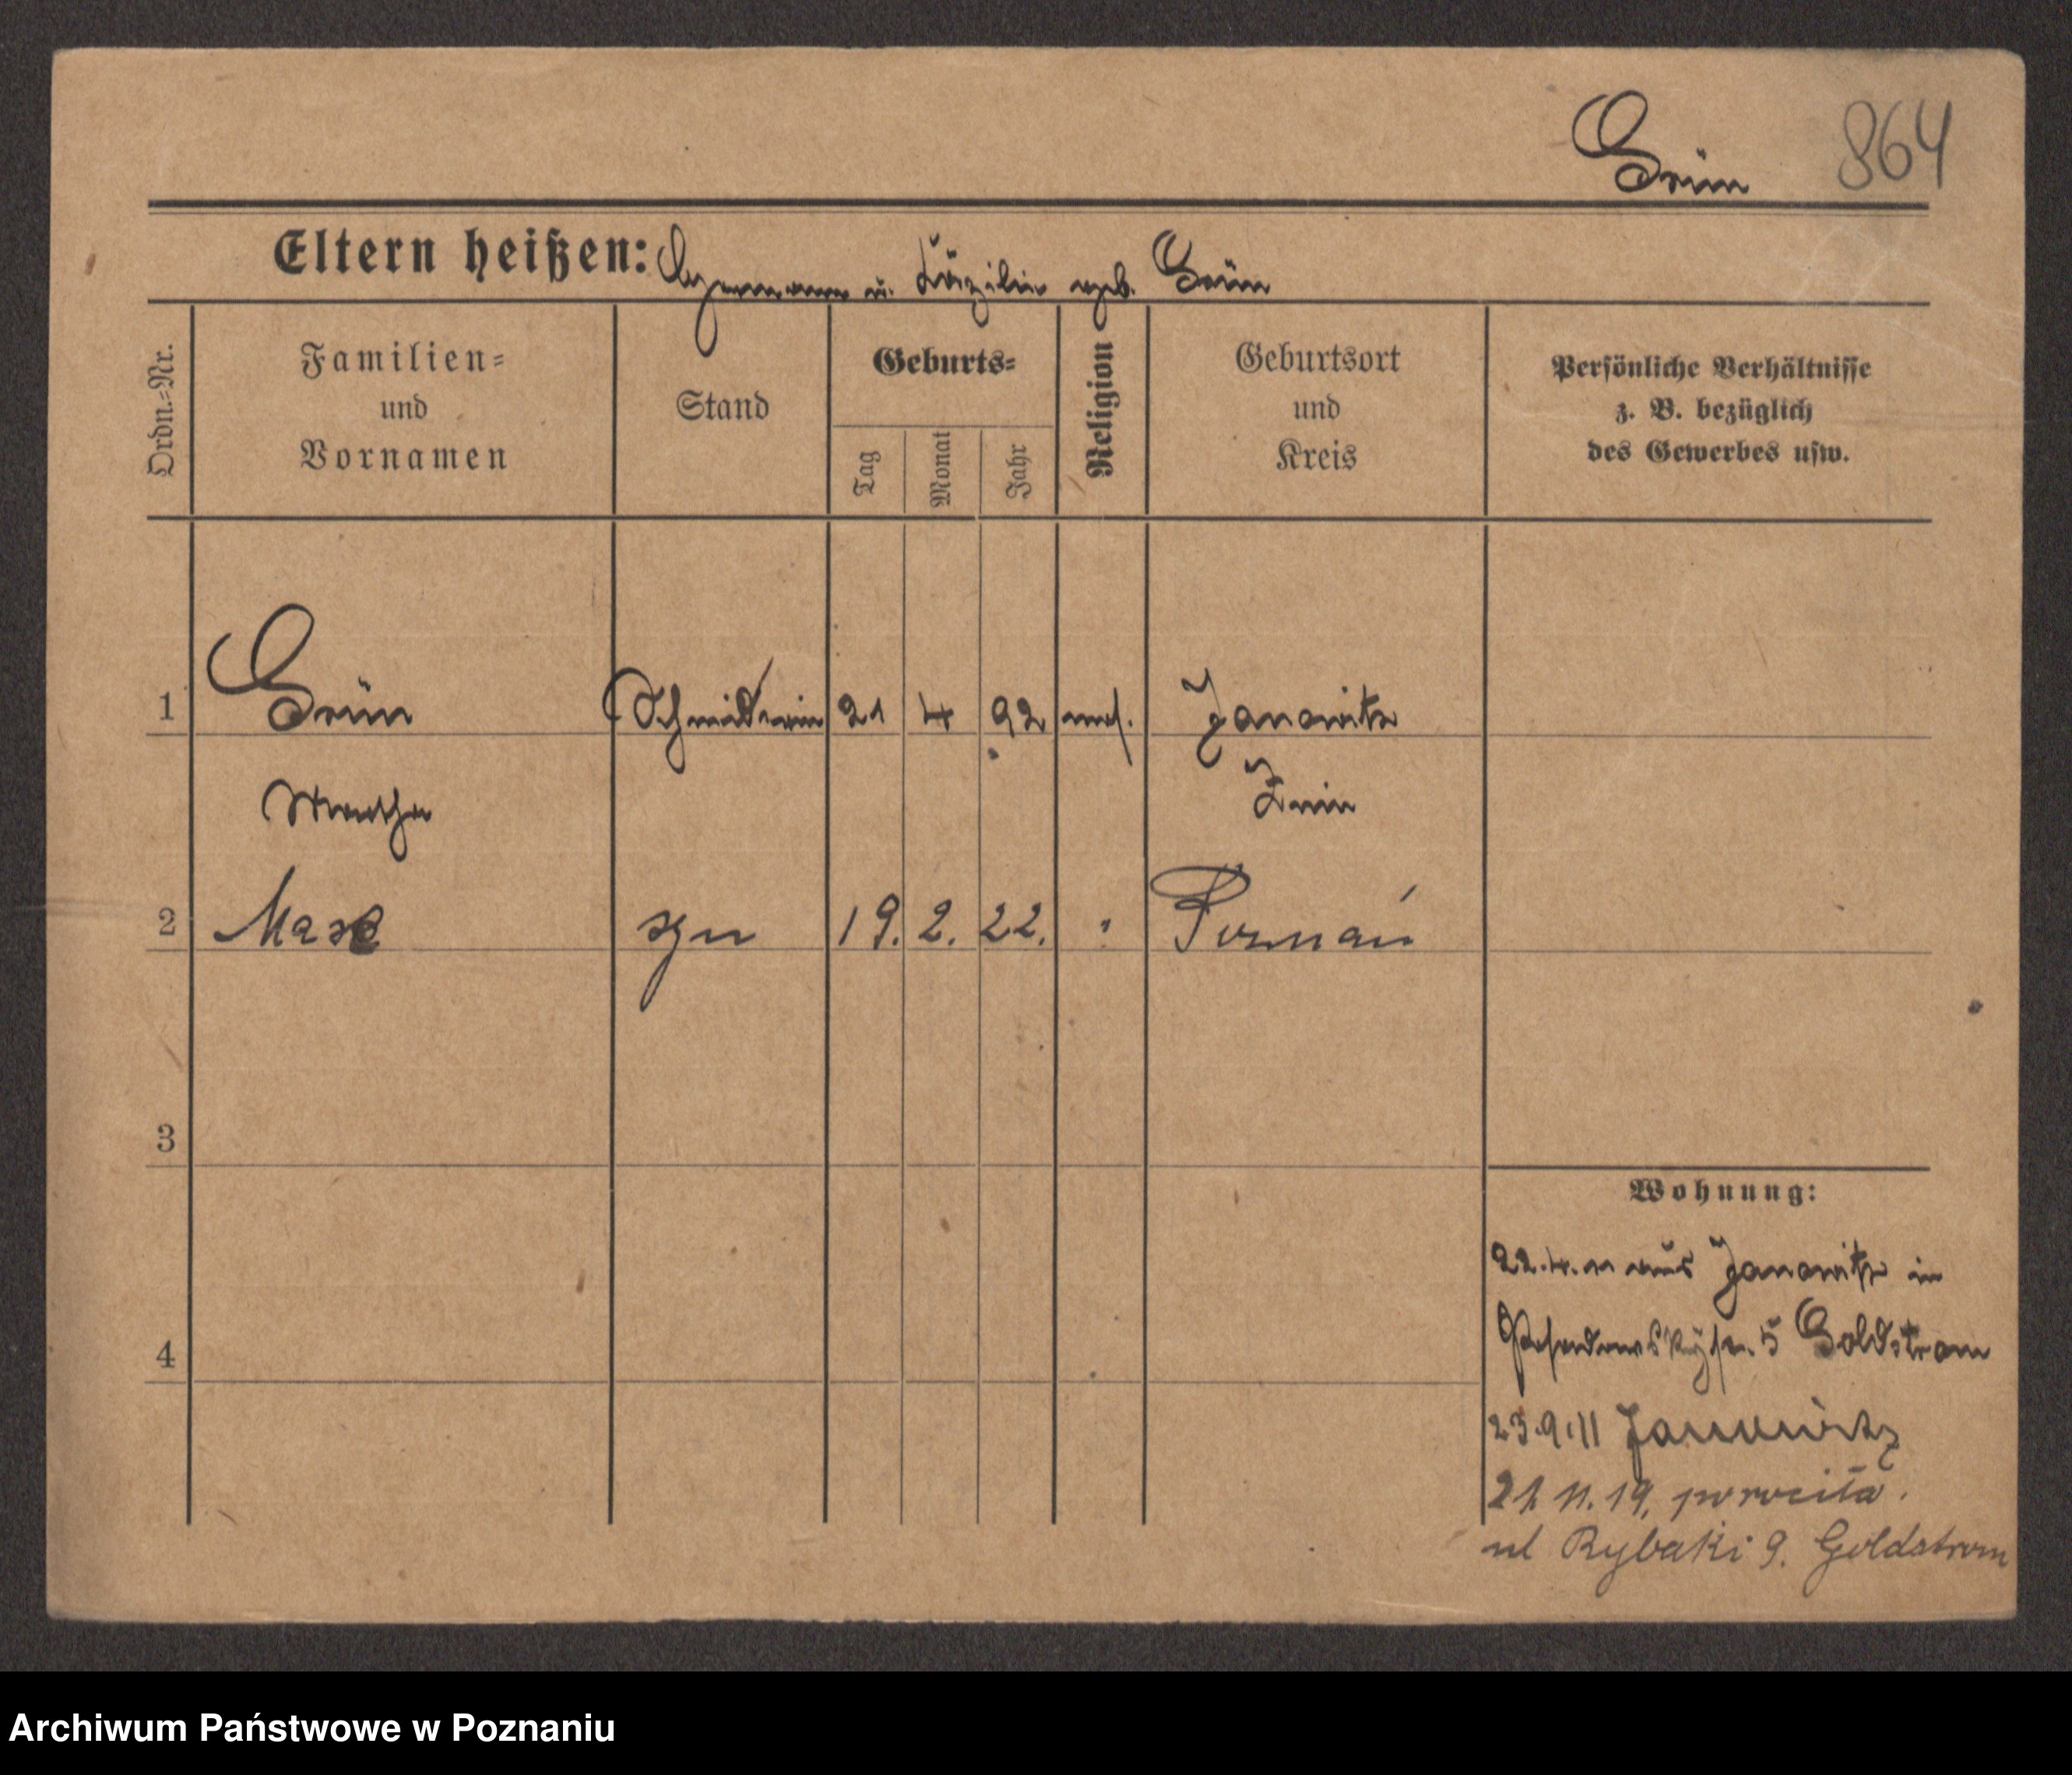 Grün 864
Eltern heißen: Hermann u. Cäzilie geb. Grün
Ordn.-Nr.
Familien-
und
Vornamen
Stand
Geburts-
Tag
Monat
Jahr
Religion
Geburtsort
und
Kreis
Persönliche Verhältnisse
z. B. bezüglich
des Gewerbes usw.
1 Grün 21 4 92 mos. Janowitz
Martha Znin
2 Max syn 19. 2. 22. " Poznań
3
4
Wohnung:
22.4.11 aus Janowitz in
5 Goldstrom
23.9.11 Janowitz
21 11. 19. powrociła.
ul Rybaki 9. Goldstrom
Archiwum Państwowe w Poznaniu